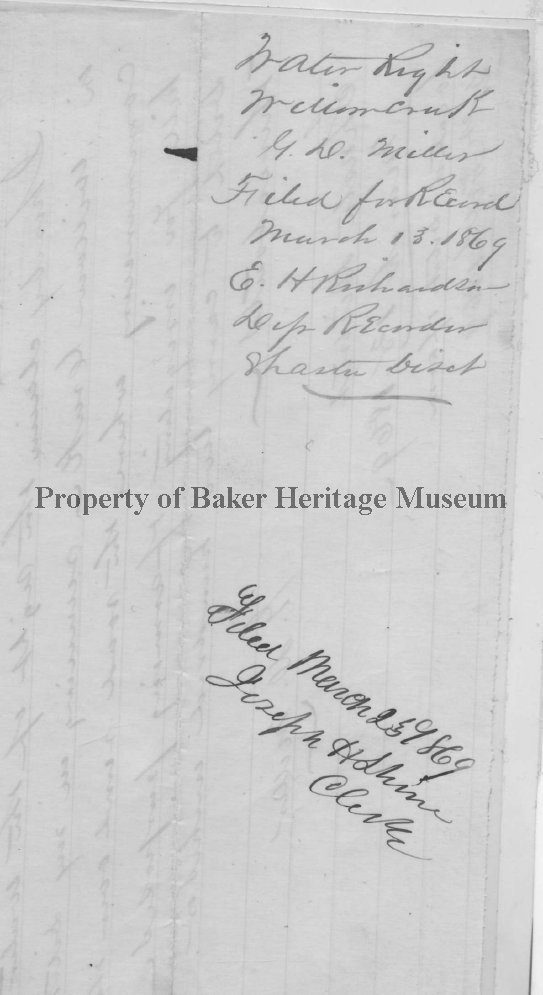 Water Right
Willowcreek
G. D. Miller
Filed for REcord
March 13. 1869
E. H Richardson
Dep REcorder
Shasta Disct
Property of Baker Heritage Museum
Filed March 25 1869
Joseph H Shinn
Clerk